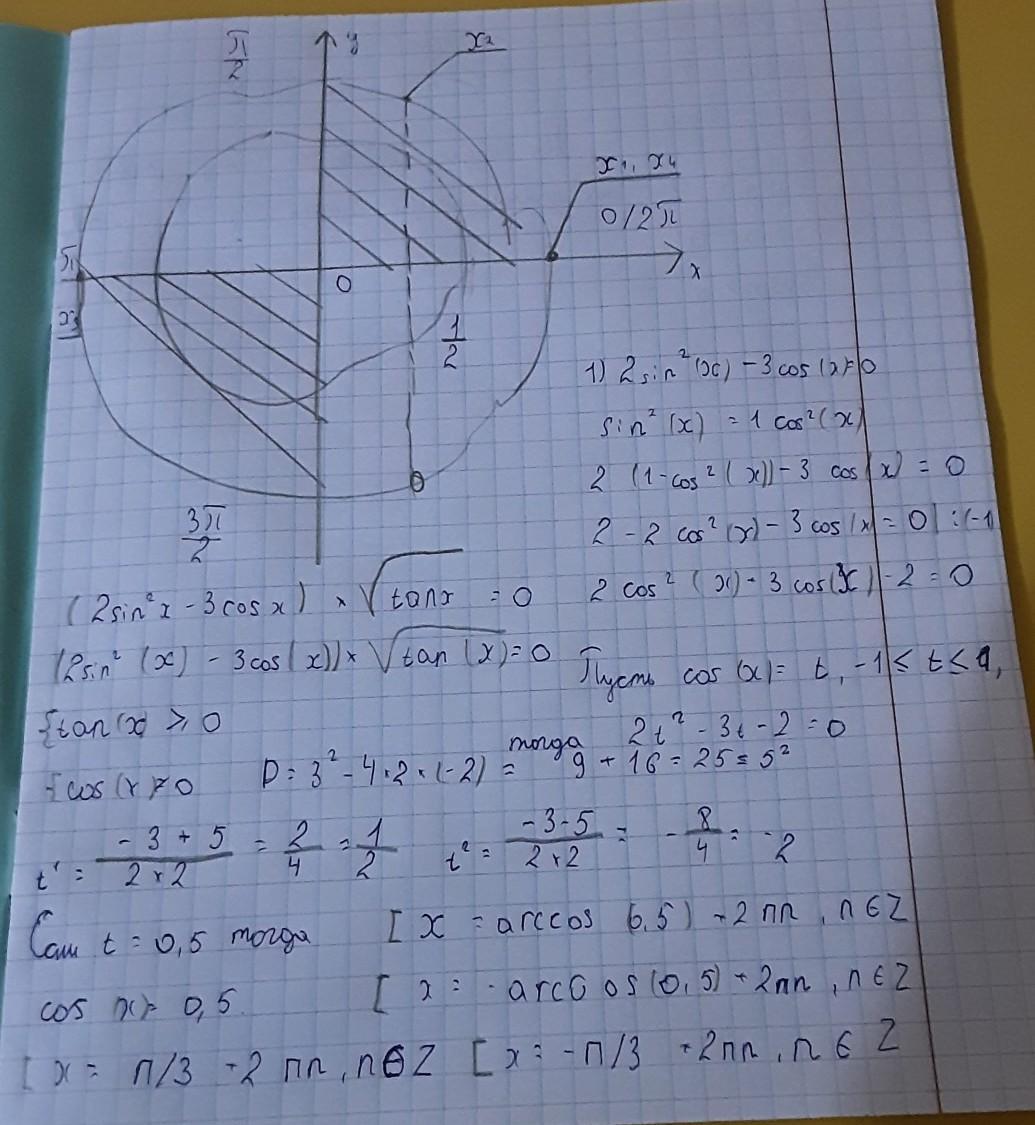 π/2
y
x₂
x₁, x₄
0/2π
π
x₃
0
x
1/2
3π/2
1) 2sin²(x) - 3cos(x)=0
sin²(x) = 1 cos²(x)
2 (1-cos²(x)) - 3 cos(x) = 0
2 - 2 cos²(x) - 3cos(x) = 0 | :(-1)
2 cos²(x) - 3 cos(x) - 2 = 0
(2sin²x - 3cosx) × √tanx = 0
(2sin²(x) - 3cos(x)) × √tan(x) = 0
Пусть cos(x) = t, -1 ≤ t ≤ 1,
{tan(x) ≥ 0
тогда 2t² - 3t - 2 = 0
{cos(x) ≠ 0
D = 3² - 4×2×(-2) = 9 + 16 = 25 = 5²
t¹ = (-3 + 5)/(2×2) = 2/4 = 1/2 t² = (-3-5)/(2×2) = -8/4 = -2
Если t = 0,5 тогда [ x = arccos (0,5) - 2πn, n∈Z
cos x = 0,5. [ x = - arccos (0,5) + 2πn, n∈Z
[ x = π/3 - 2 πn, n∈Z [ x = -π/3 + 2πn, n ∈ Z